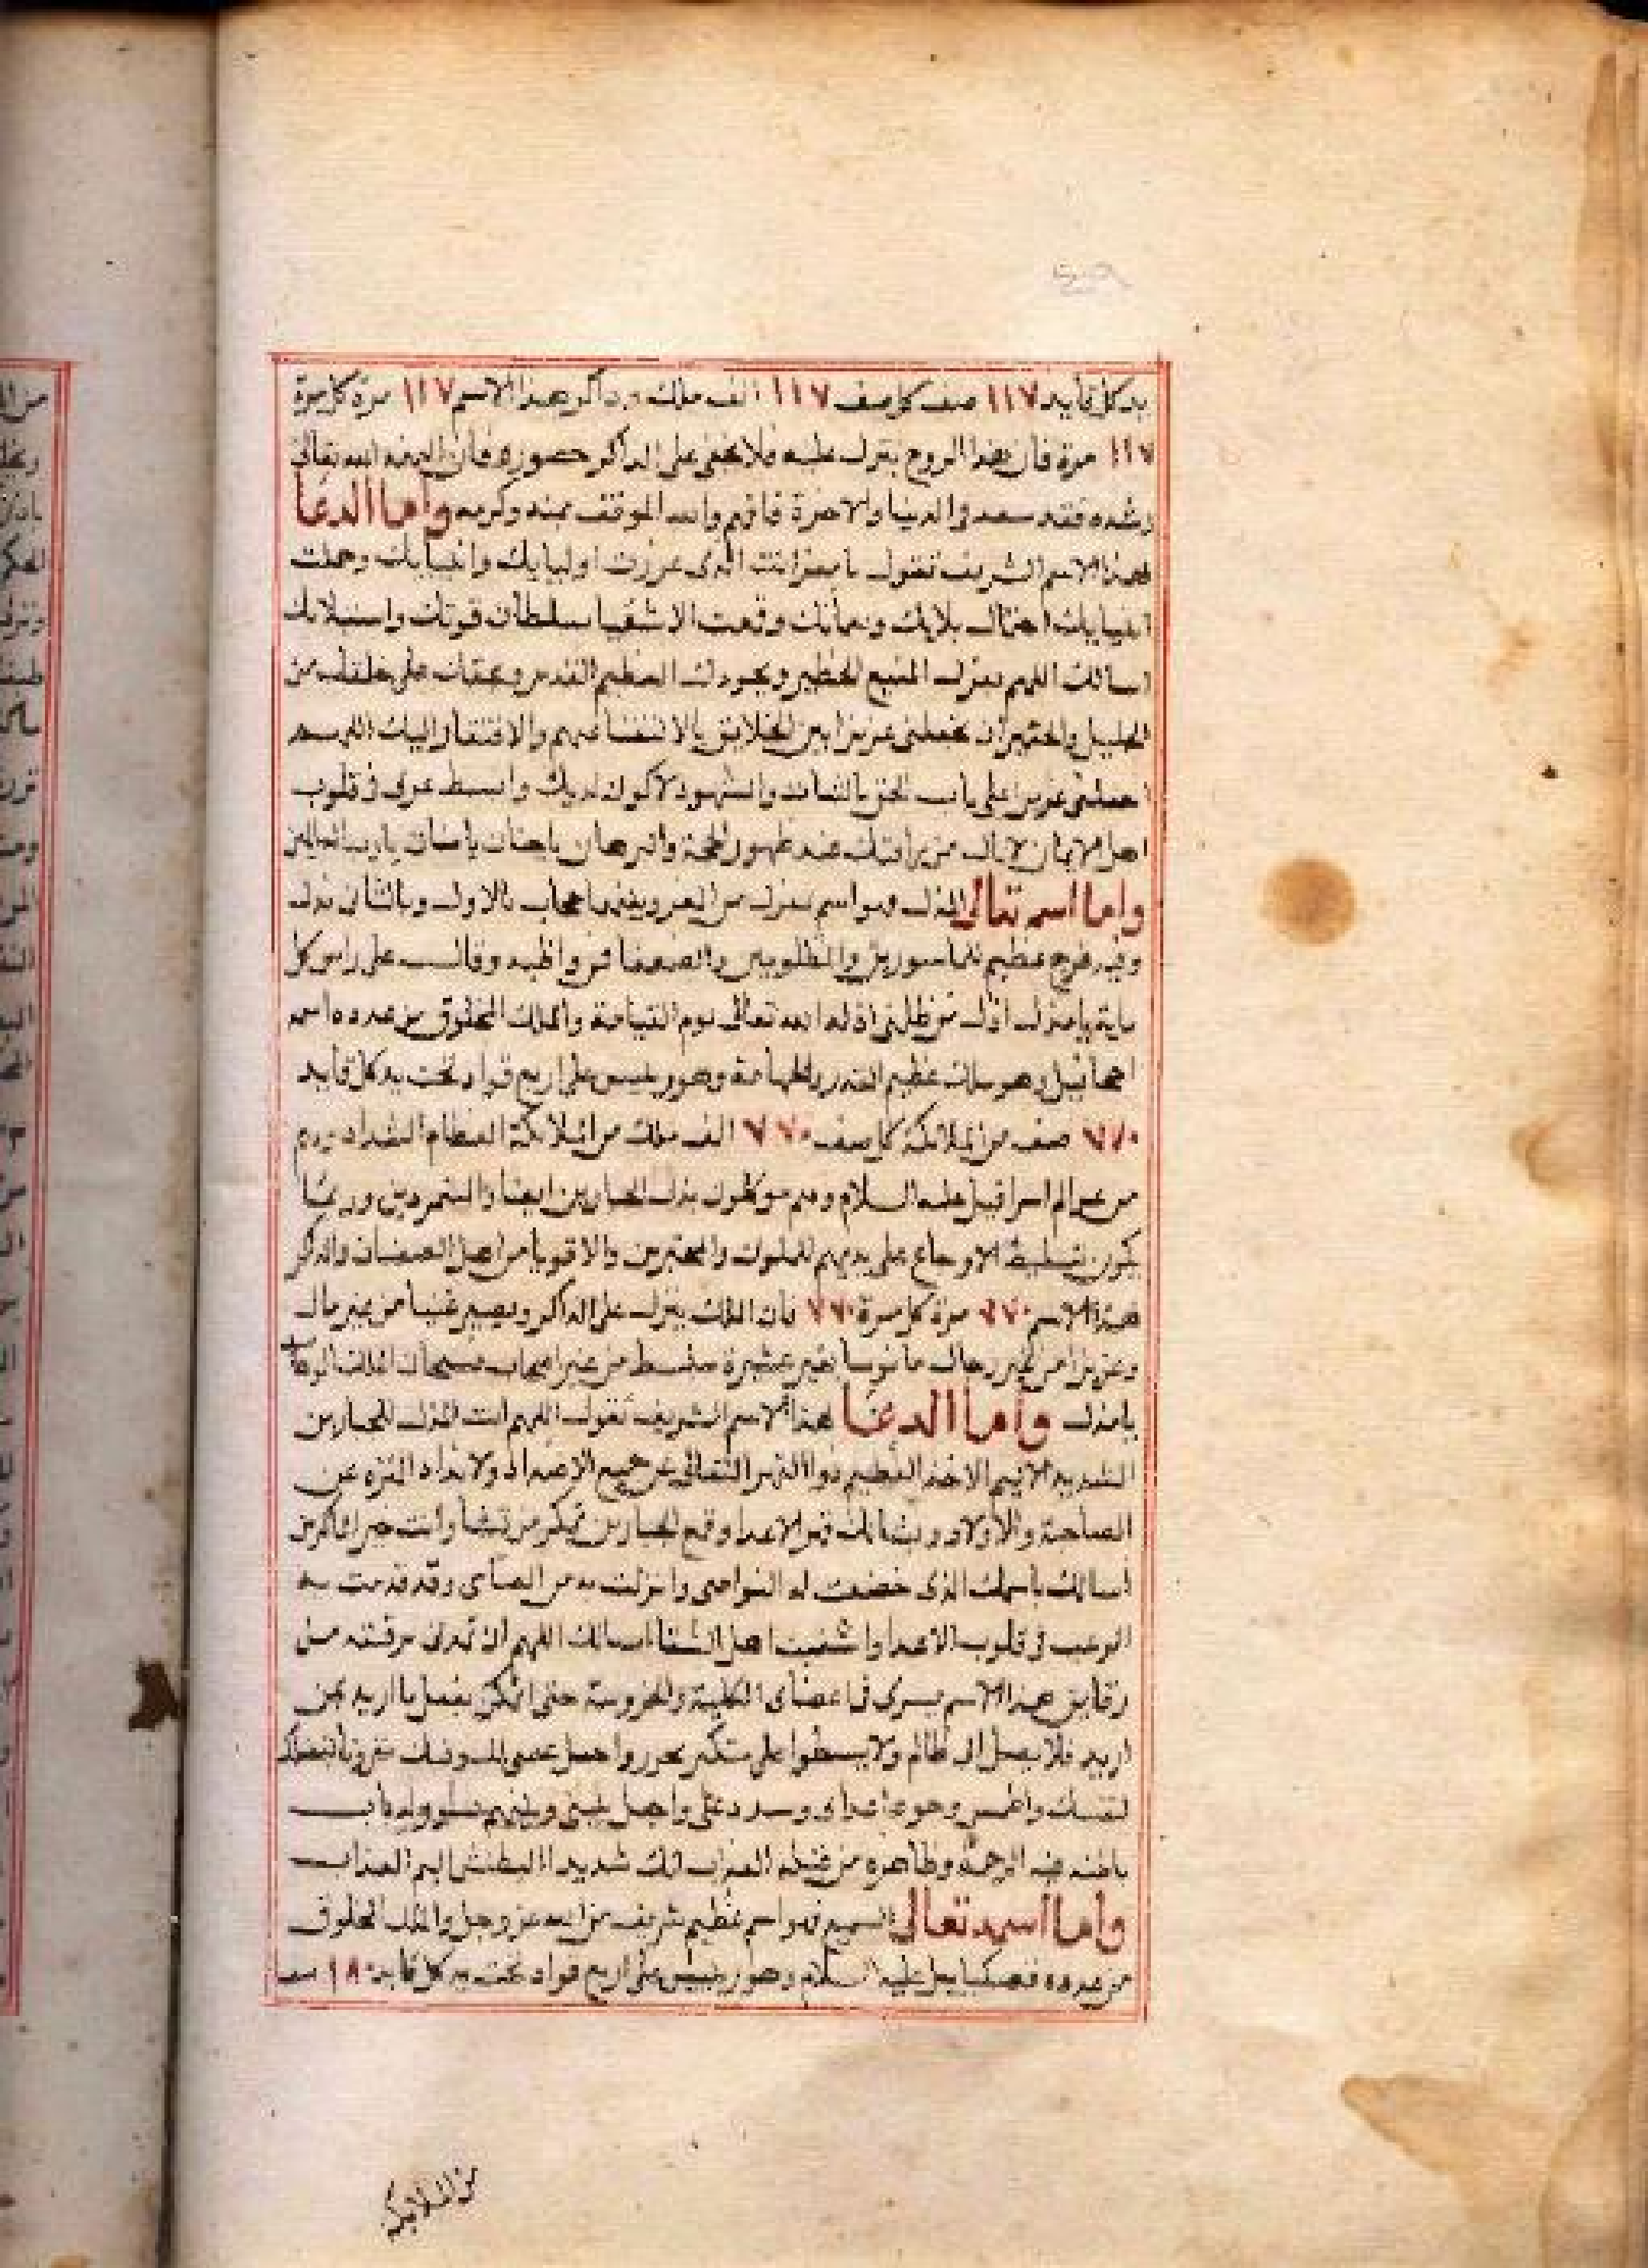 يد كل قايد ١١٧ صف كل صف ١١٧ الف ملك وذاكر هذا الاسم ١١٧ مرة كل مرة
١١٧ مرة فان هذا الروح ينزل عليه فلا يخفى على الذاكر حضوره فان الهمه الله تعالى
رشده فقد سعد في الدنيا والاخرة فافهم والله الموفق بمنه وكرمه واما الدعا
بهذا الاسم الشريف تقول يا معز انت الذي عززت اوليايك وانبيايك وحملت
اثقال بلايك وقمعت الاشقيا بسلطان قوتك واستيلايك
اسالك اللهم بعزك المنيع الخطير وبجودك العظيم القدر وبحقك على خلقك من
الجليل والحقير ان تجعلني عزيزا بين الخلايق بالاستغنا عنهم والافتقار اليك اللهم
اجعلني عزيزا على باب الحق والشهود لاكون لديك وابسط عزي في قلوب
اهل الايمان عند ظهور الحجة والبرهان يا حنان يا منان يا رب العالمين
واما اسمه تعالى المذل فهو اسم ينزل من العز بالاول وبالثاني يذل
وفيه فرج عظيم للماسورين والمظلومين والضعفا من واظبه وقال على راس كل
ماية يا مذل اذل من ظلمني اذله الله تعالى يوم القيامة والملك المخلوق من عدده اسمه
وهو ملك عظيم القدر وهو رييس على اربع قواد تحت يد كل قايد
٧٧٠ صف من الملايكة كل صف ٧٧٠ الف ملك من الملايكة العظام الشداد وهم
من عوالم اسرافيل عليه السلام وهم موكلون بذل الجبارين ايضا والمتمردين وربما
يكون تسليط الاوجاع على يديهم للملوك والاقويا من اهل العصيان والذاكر
بهذا الاسم ٧٧٠ مرة كل مرة ٧٧٠ فان الملك ينزل على الذاكر ويصير غنيا من غير مال
وعزيزا من غير رجال مانوسا بغير عشيرة من غير اصحاب فسبحان الملك الوهاب
يا مذل واما الدعا بهذا الاسم الشريف تقول اللهم انت المذل للجبارين
الشديد الاليم الاخذ العظيم ذو القهر المتعالي عن جميع الاضداد والانداد المنزه عن
الصاحبة والاولاد قهر الاعدا وقمع الجبارين تمكر من تشا وانت خير الماكرين
اسالك باسمك الذي خضعت له النواصي وانزلت به من الصياصي وقد قذفت به
الرعب في قلوب الاعدا واشقيت اهل الشقا اسالك اللهم ان تمدني برقيقة من
رقايق هذا الاسم يسري في اعضاي الكلية والجزوية حتى اتمكن بفعل ما اريد بمن
اريد فلا يصل الى ظالم ولا يسطوا علي متكبر واجعل غضبي لك وفيك مقرونا بغضبك
لنفسك واطمس وجوه اعداي وسدد عني واجعل بيني وبينهم بسور له باب
باطنه فيه الرحمة وظاهره من قبله العذاب انك شديد البطش اليم العذاب
واما اسمه تعالى السميع فهو اسم عظيم شريف من الله عز وجل والملك المخلوق
من عدده عليه السلام وهو رييس على اربع قواد تحت يد كل قايد ١٨٠ صف
من الملايكة